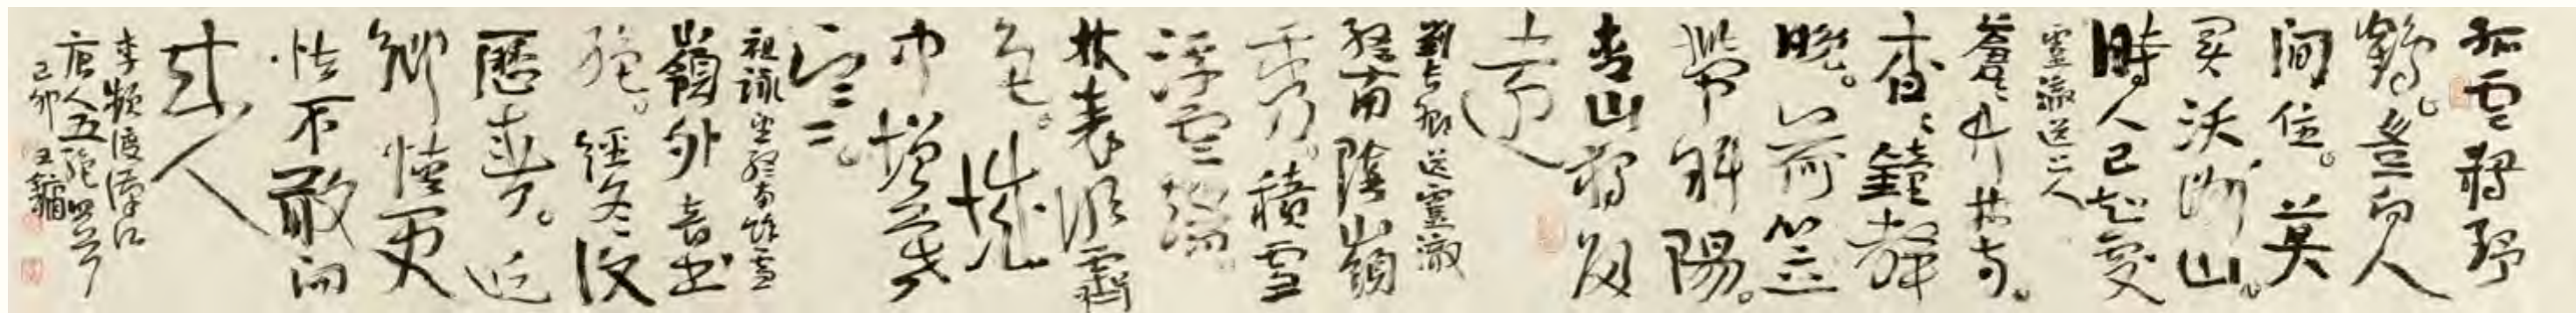 孤雲將野
鶴。豈向人
間住。莫
買沃洲山。
時人已知處
靈澈送上人
蒼〻竹林寺。
杳〻鐘聲
晚。荷笠
帶斜陽。
青山獨歸
遠
劉長卿送靈澈
終南陰嶺
秀。積雪
浮雲端。
林表明霽
色。城
中增暮
寒。
祖詠望終南餘雪
嶺外音書
絕。經冬復
歷春。近
鄉情更
怯不敢問
來人
李頻渡漢江
唐人五絕四首
己卯 王鏞